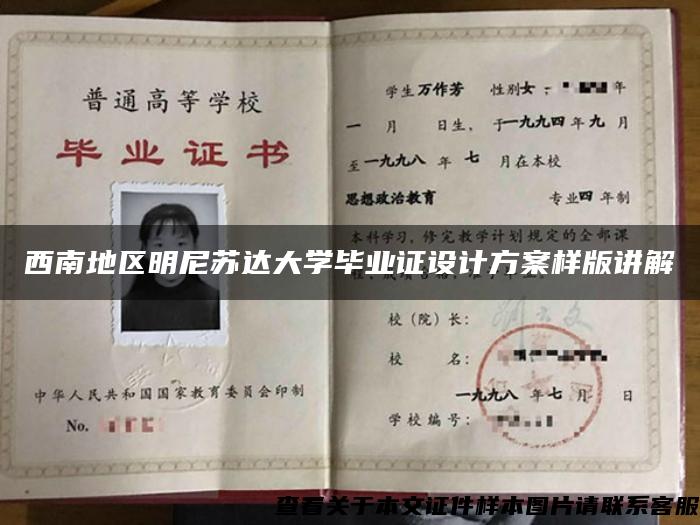 普通高等学校
毕业证书
中华人民共和国国家教育委员会印制
No.
学生 万作芳 性别 女 , 年
一 月 日生, 于一九九四年九 月
至一九九八 年 七 月在本校
思想政治教育 专业四年制
本科学习, 修完教学计划规定的全部课
西南地区明尼苏达大学毕业证设计方案样版讲解
校(院)长:
校 名:
一九九八 年七月 日
学校编号:
查看关于本文证件样本图片请联系客服